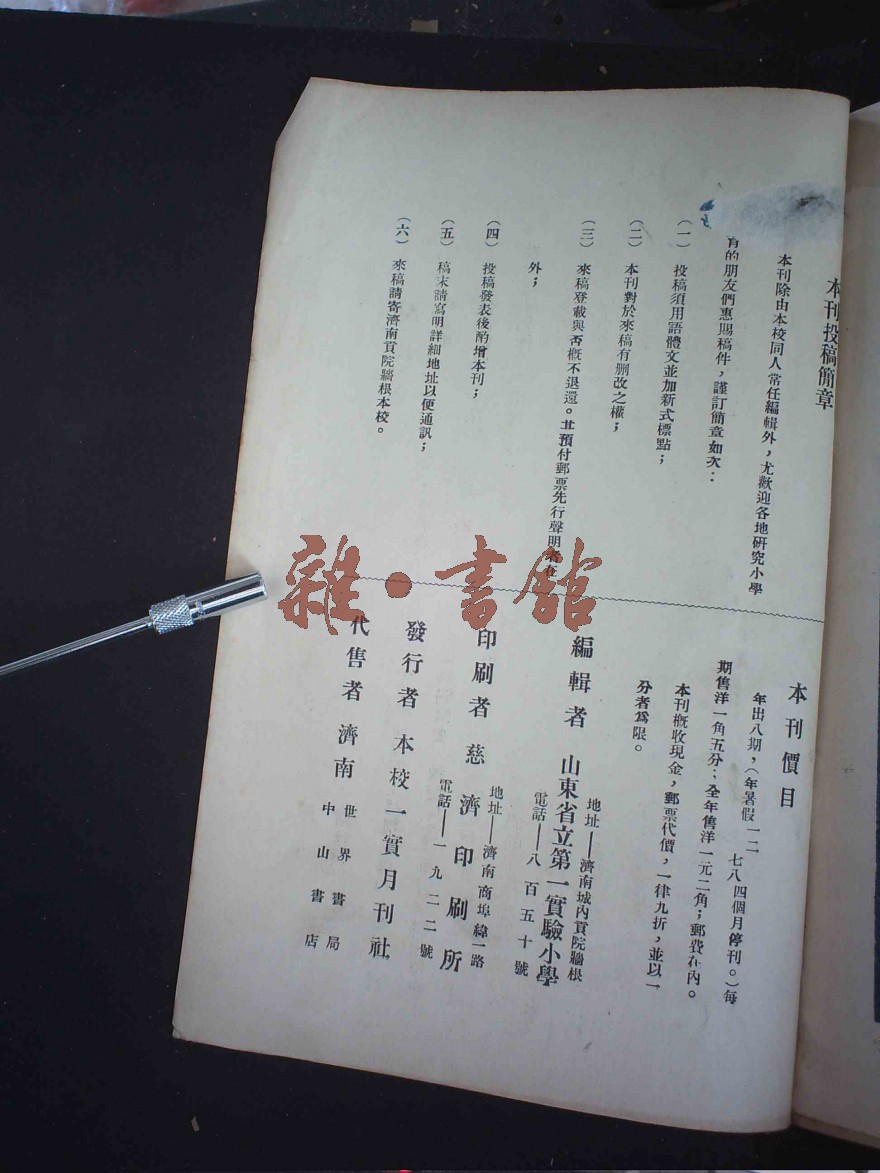 本刊投稿簡章
本刊除由本校同人常任編輯外，尤歡迎各地研究小學
育的朋友們惠賜稿件，謹訂簡章如次：
（一）　投稿須用語體文並加新式標點；
（二）　本刊對於來稿有刪改之權；
（三）　來稿登載與否概不退還。其預付郵票先行聲明者在
外；
（四）　投稿發表後酌增本刊；
（五）　稿末請寫明詳細地址以便通訊；
（六）　來稿請寄濟南貢院牆根本校。
本刊價目
年出八期，（年暑假一二
七八四個月停刊。）每
期售洋一角五分；全年售洋一元二角；郵費在內。
本刊概收現金，郵票代價，一律九折，並以一
分者爲限。
編輯者　山東省立第一實驗小學
地址——濟南城內貢院牆根
電話——八百五十號
印刷者　慈濟印刷所
地址——濟南商埠緯一路
電話——一九二二號
發行者　本校一實月刊社
代售者　濟南
世界書局
中山書店
雜·書館